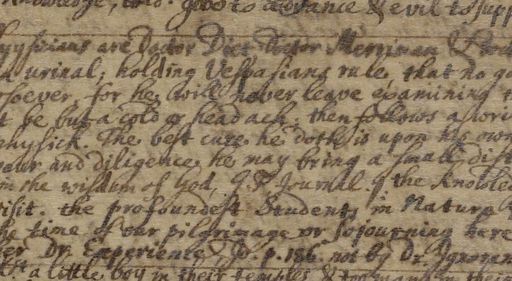 knowledge, good to advance & evil to supp
hysitians are Doctor Diet Doctor Merriman &
urinal, holding Vespasians rule, that no ga
soever, for he will never leave examining t
be but a cold or head ach, then follows a
physick. The best cure he doth is upon his own
and diligence, he may bring a small dist
the wisdom of God, Journal of the Knowled
visit the profoundest Students in Nature
time of our pilgrimage or Sojourning here
Dr. Experience, p. 186. not by Dr. Ignoran
a little boy in their temples & in their